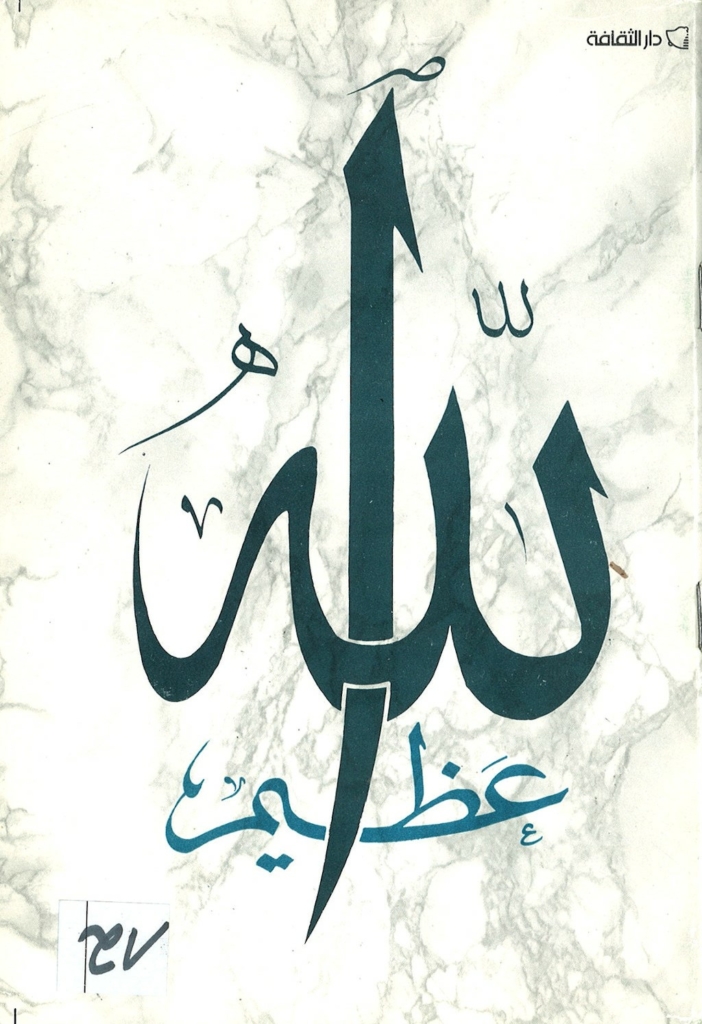 دار الثقافة
الله
عظيم